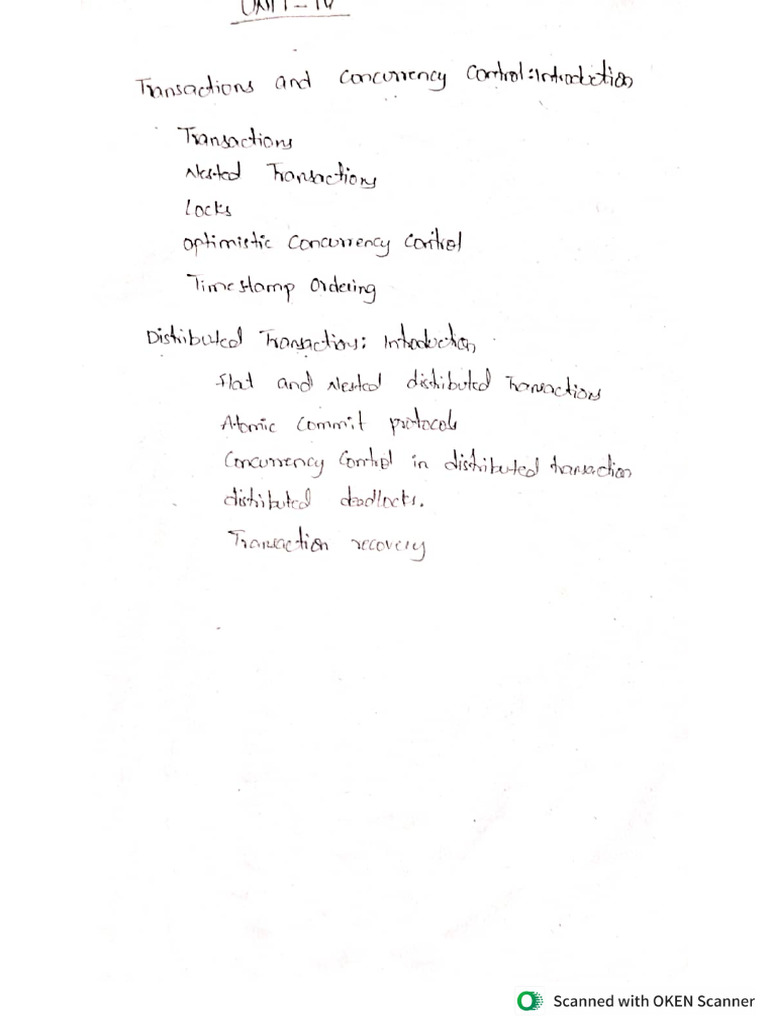 UNIT-IV
Transactions and Concurrency Control:Introduction
Transactions
Nested Transactions
Locks
optimistic Concurrency Control
Timestamp Ordering
Distributed Transactions: Introduction
flat and Nested distributed Transactions
Atomic Commit protocols
Concurrency Control in distributed transaction
distributed deadlocks.
Transaction recovery
Scanned with OKEN Scanner